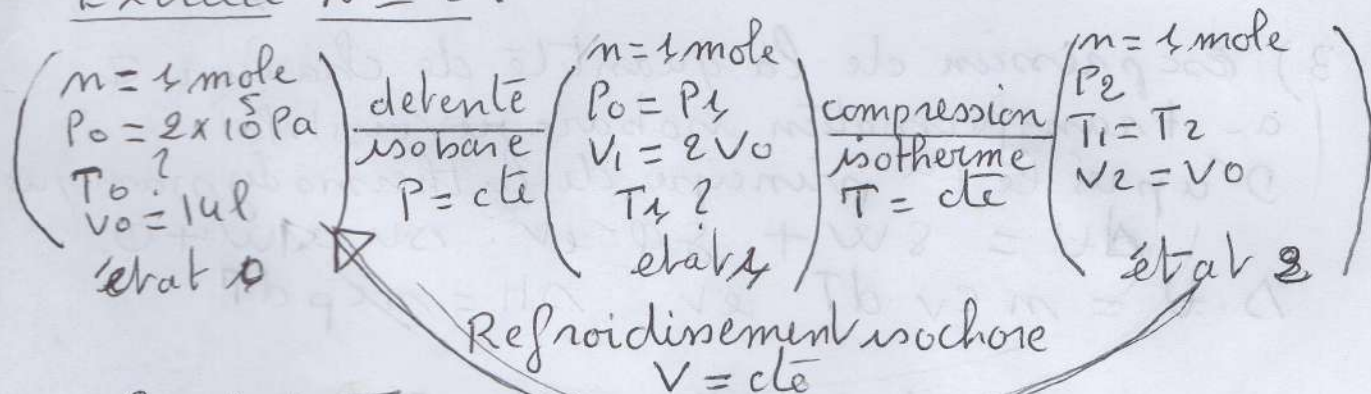 n = 1 mole
P0 = 2 x 10^5 Pa
T0 ?
V0 = 14l
état 0
détente
isobare
P = cte
n = 1 mole
P0 = P1
V1 = 2 V0
T1 ?
état 1
compression
isotherme
T = cte
n = 1 mole
P2
T1 = T2
V2 = V0
état 2
Refroidissement isochore
V = cte